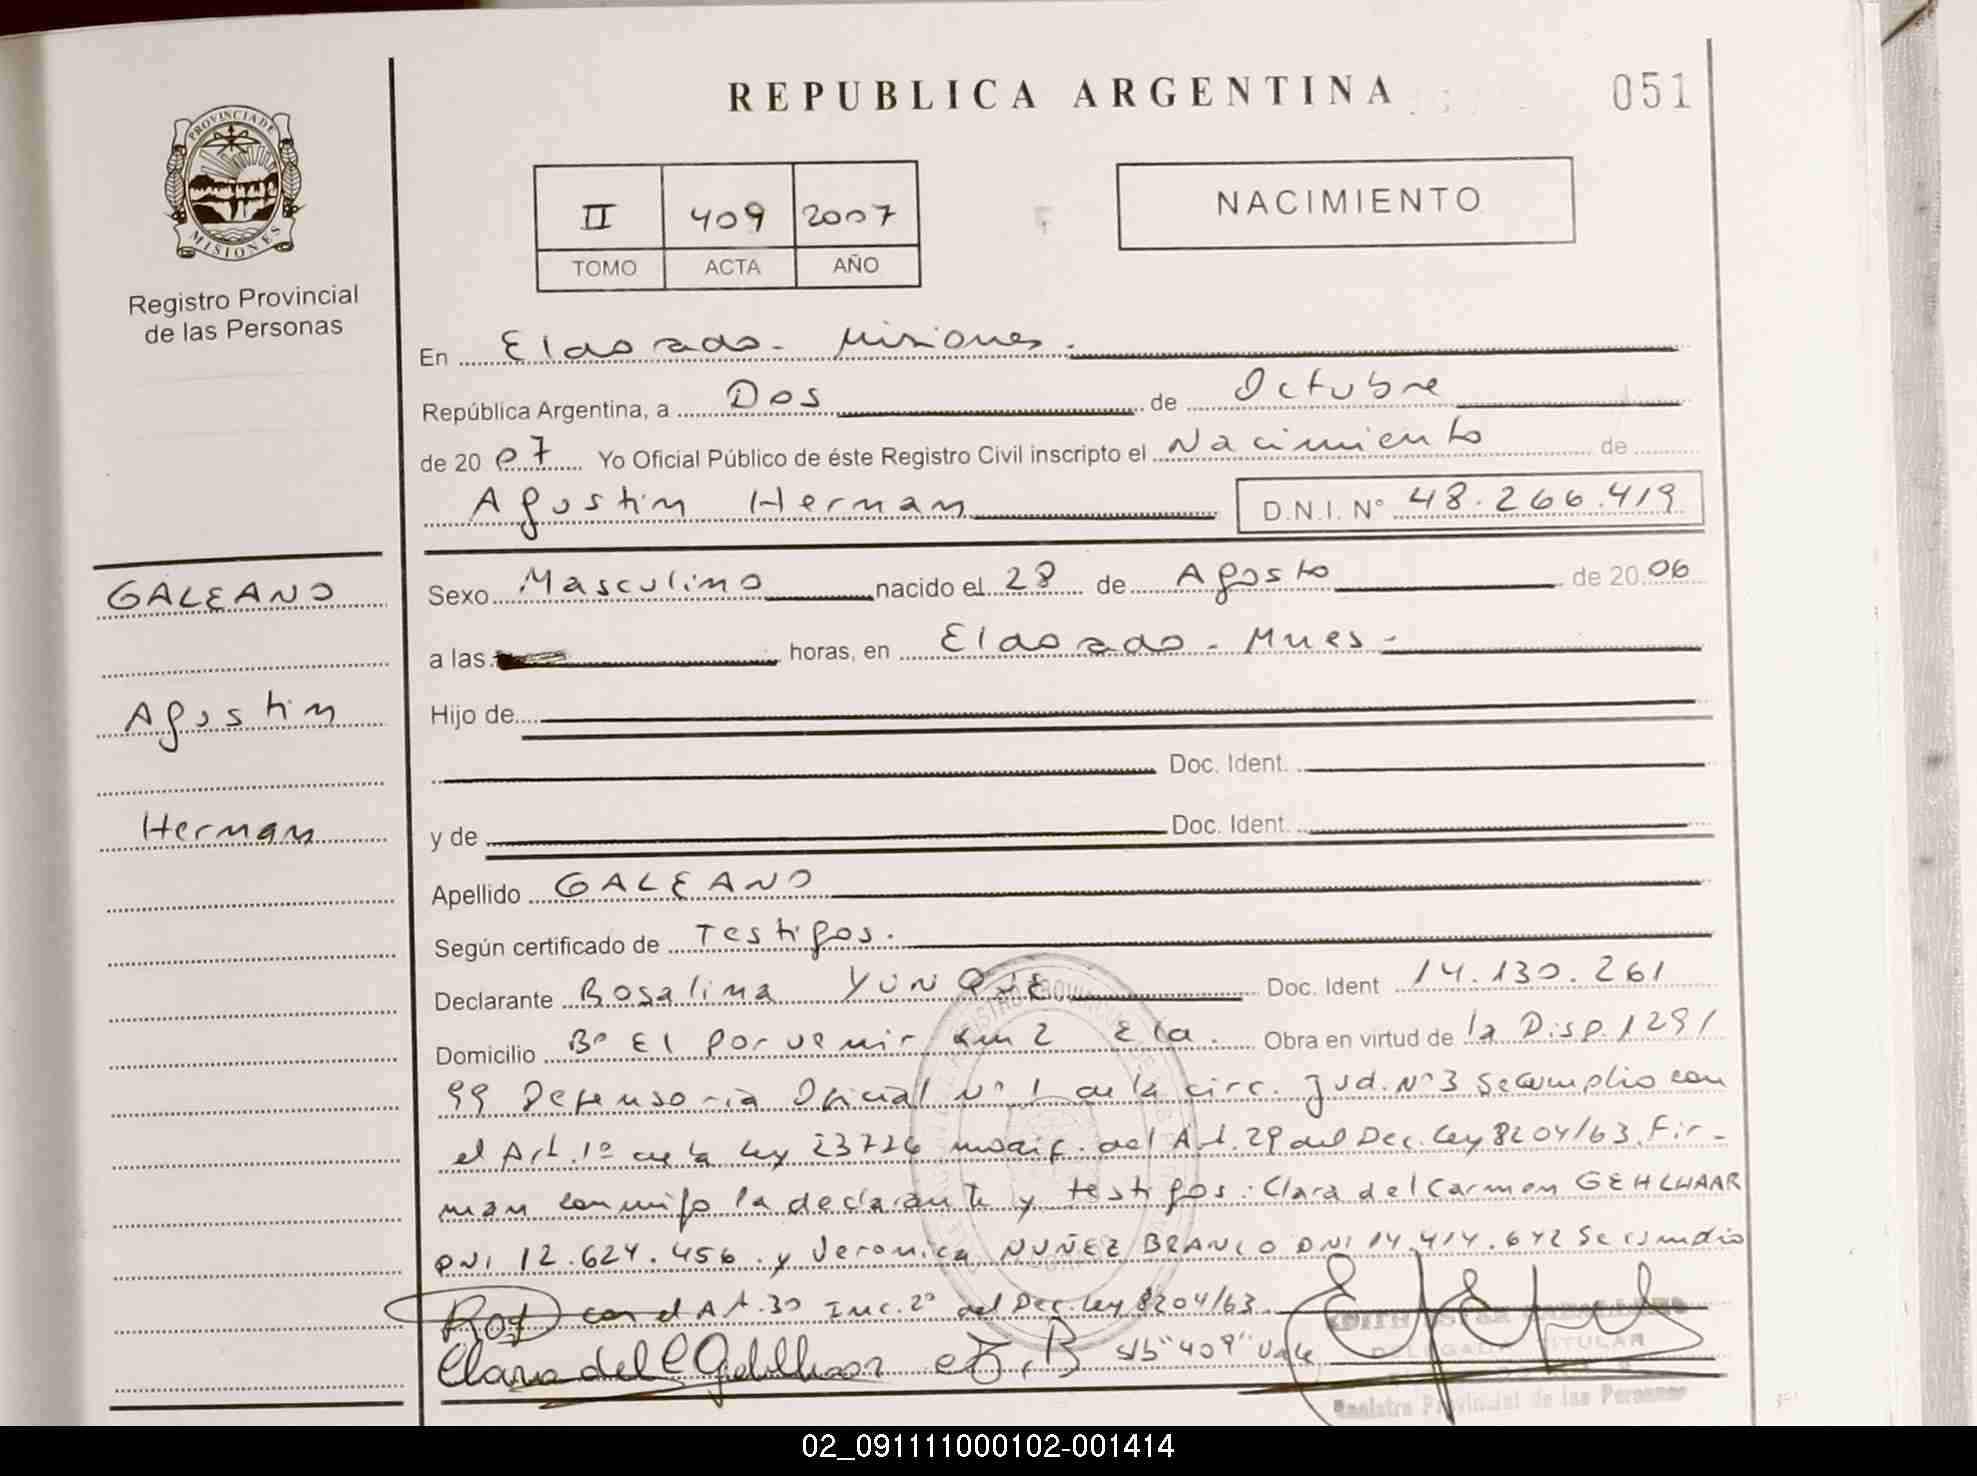 REPUBLICA ARGENTINA
051
PROVINCIA DE
MISIONES
Registro Provincial
de las Personas
II 409 2007
TOMO ACTA AÑO
NACIMIENTO
En Eldorado - Misiones.
República Argentina, a Dos de Octubre
de 20 07 Yo Oficial Público de éste Registro Civil inscripto el Nacimiento de
Agostin Hernan D.N.I. N° 48.266.419
GALEANO
Agostin
Hernan
Sexo Masculino nacido el 28 de Agosto de 20 06
a las horas, en Eldorado - Mnes -
Hijo de
Doc. Ident.
y de Doc. Ident.
Apellido GALEANO
Según certificado de Testigos.
Declarante Rosalina YUNQUE Doc. Ident 14.130.261
Domicilio B° El Porvenir km 2 Eld. Obra en virtud de la Disp. 1291
99 Defensoria Oficial N° 1 de la circ. Jud. N° 3 Se cumplio con
el Art. 1° de la Ley 23776 modif. del Art. 29 del Dec. Ley 8204/63. Fir-
man conmigo la declarante y testigos: Clara del Carmen GEHLHAAR
DNI 12.624.456 y Veronica NUÑEZ BRANCO DNI 14.414.642 Se cumplio
con el Art. 30 Inc. 2° del Dec. Ley 8204/63
Roy
Clara del C Gehlhaar s/b "409" Vale
DELEGADA TITULAR
Registro Provincial de las Personas
02_091111000102-001414